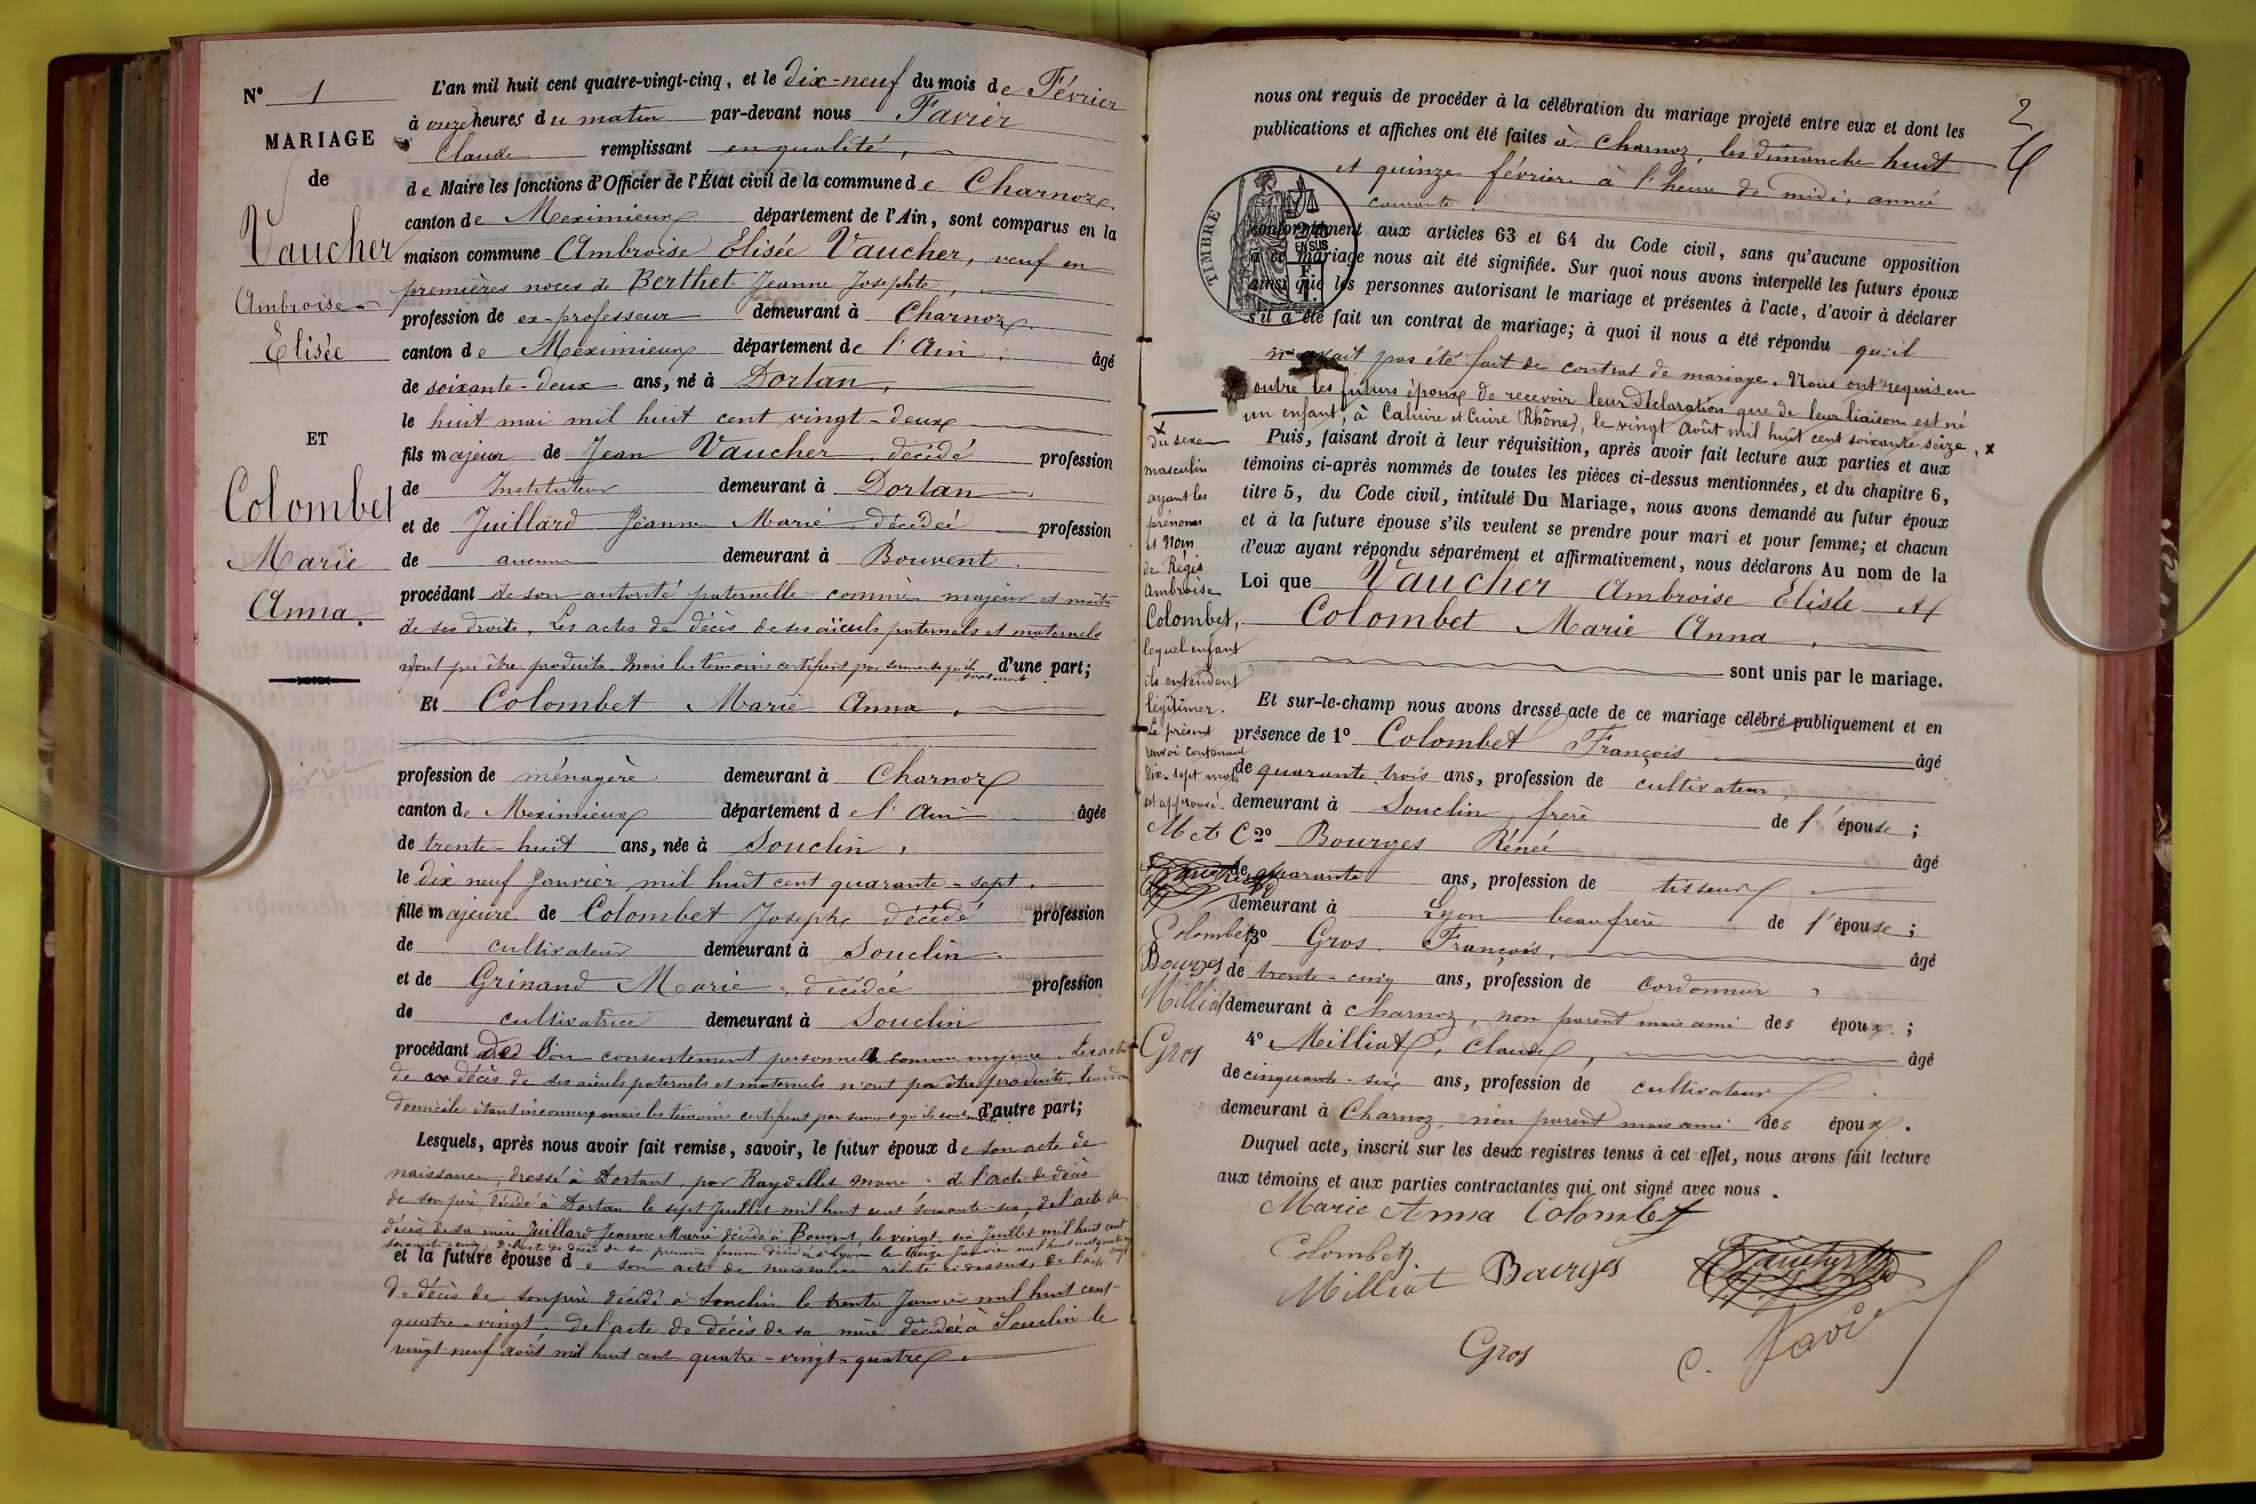 N° 1
MARIAGE
de
Vaucher
Ambroise
Elisée
ET
Colombet
Marie
Anna.
L'an mil huit cent quatre-vingt-cinq, et le dix-neuf du mois de Février
à onze heures du matin par-devant nous Favier
Claude remplissant en qualité,
de Maire les fonctions d'Officier de l'État civil de la commune de Charnoz.
canton de Meximieux département de l'Ain, sont comparus en la
maison commune Ambroise Elisée Vaucher, veuf en
premières noces de Berthet Jeanne Josephte,
profession de ex-professeur demeurant à Charnoz
canton de Meximieux département de l'Ain, âgé
de soixante-deux ans, né à Dortan,
le huit mai mil huit cent vingt-deux
fils majeur de Jean Vaucher, décédé profession
de Instituteur demeurant à Dortan
et de Juillard Jeanne Marie décédée profession
de aucune demeurant à Bouvent
procédant de son autorité paternelle comme majeur et maître
de ses droits. Les actes de décès de ses aïeuls paternels et maternels
n'ont pu être produits. Mais les témoins certifient par serment qu'ils sont morts d'une part;
Et Colombet Marie Anna,
profession de ménagère demeurant à Charnoz
canton de Meximieux département de l'Ain âgée
de trente-huit ans, née à Souclin,
le dix neuf Janvier mil huit cent quarante-sept.
fille majeure de Colombet Joseph décédé profession
de cultivateur demeurant à Souclin
et de Grinand Marie, décédée profession
de cultivatrice demeurant à Souclin
procédant de son consentement personnel comme majeure. Les actes
de décès de ses aïeuls paternels et maternels n'ont pu être produits, leur
domicile étant inconnu, mais les témoins certifient par serment qu'ils sont morts d'autre part;
Lesquels, après nous avoir fait remise, savoir, le futur époux de son acte de
naissance, dressé à Dortant, par maire. de l'acte de décès
de son père, décédé à Dortan le sept Juillet mil huit cent soixante-six, de l'acte de
décès de sa mère Juillard Jeanne Marie décédée à Bouvent, le vingt-six Juillet mil huit cent
soixante-cinq. De l'acte de décès de sa première femme décédée à Lyon le treize Janvier mil huit cent
et la future épouse de son acte de naissance relaté ci-dessus, de l'acte
de décès de son père décédé à Souclin le trente Janvier mil huit cent
quatre-vingt, de l'acte de décès de sa mère décédée à Souclin le
vingt neuf août mil huit cent quatre-vingt-quatre.
2
nous ont requis de procéder à la célébration du mariage projeté entre eux et dont les
publications et affiches ont été faites à Charnoz, les dimanche huit
et quinze février à l'heure de midi, année
courante,
TIMBRE
2/10
EN SUS
conformément aux articles 63 et 64 du Code civil, sans qu'aucune opposition
à ce mariage nous ait été signifiée. Sur quoi nous avons interpellé les futurs époux
ainsi que les personnes autorisant le mariage et présentes à l'acte, d'avoir à déclarer
s'il a été fait un contrat de mariage; à quoi il nous a été répondu qu'il
n'avait pas été fait de contrat de mariage. Nous ont requis en
outre les futurs époux de recevoir leur déclaration que de leur liaison est né
un enfant, à Caluire et Cuire (Rhône), le vingt Août mil huit cent soixante seize, x
x
du sexe
masculin
ayant les
prénoms
et Nom
de Régis
Ambroise
Colombet,
lequel enfant
ils entendent
légitimer.
Le présent
renvoi contenant
dix-sept mots
est approuvé.
M A C
Colombet
Bourges
Milliat
Gros
Puis, faisant droit à leur réquisition, après avoir fait lecture aux parties et aux
témoins ci-après nommés de toutes les pièces ci-dessus mentionnées, et du chapitre 6,
titre 5, du Code civil, intitulé Du Mariage, nous avons demandé au futur époux
et à la future épouse s'ils veulent se prendre pour mari et pour femme; et chacun
d'eux ayant répondu séparément et affirmativement, nous déclarons Au nom de la
Loi que Vaucher Ambroise Elisée et
Colombet Marie Anna,
sont unis par le mariage.
Et sur-le-champ nous avons dressé acte de ce mariage célébré publiquement et en
présence de 1° Colombet François âgé
de quarante trois ans, profession de cultivateur,
demeurant à Souclin, frère de l'épouse;
2° Bourges Réneé âgé
de quarante ans, profession de tisseur
demeurant à Lyon beau frère de l'épouse;
3° Gros François, âgé
de trente-cinq ans, profession de cordonnier,
demeurant à Charnoz, non parent mais ami des époux;
4° Milliat, Claude, âgé
de cinquante-six ans, profession de cultivateur
demeurant à Charnoz, non parent mais ami des époux.
Duquel acte, inscrit sur les deux registres tenus à cet effet, nous avons fait lecture
aux témoins et aux parties contractantes qui ont signé avec nous.
Marie Anna Colombet
Colombet Vaucher
Milliat Bourges
Gros C. Favier